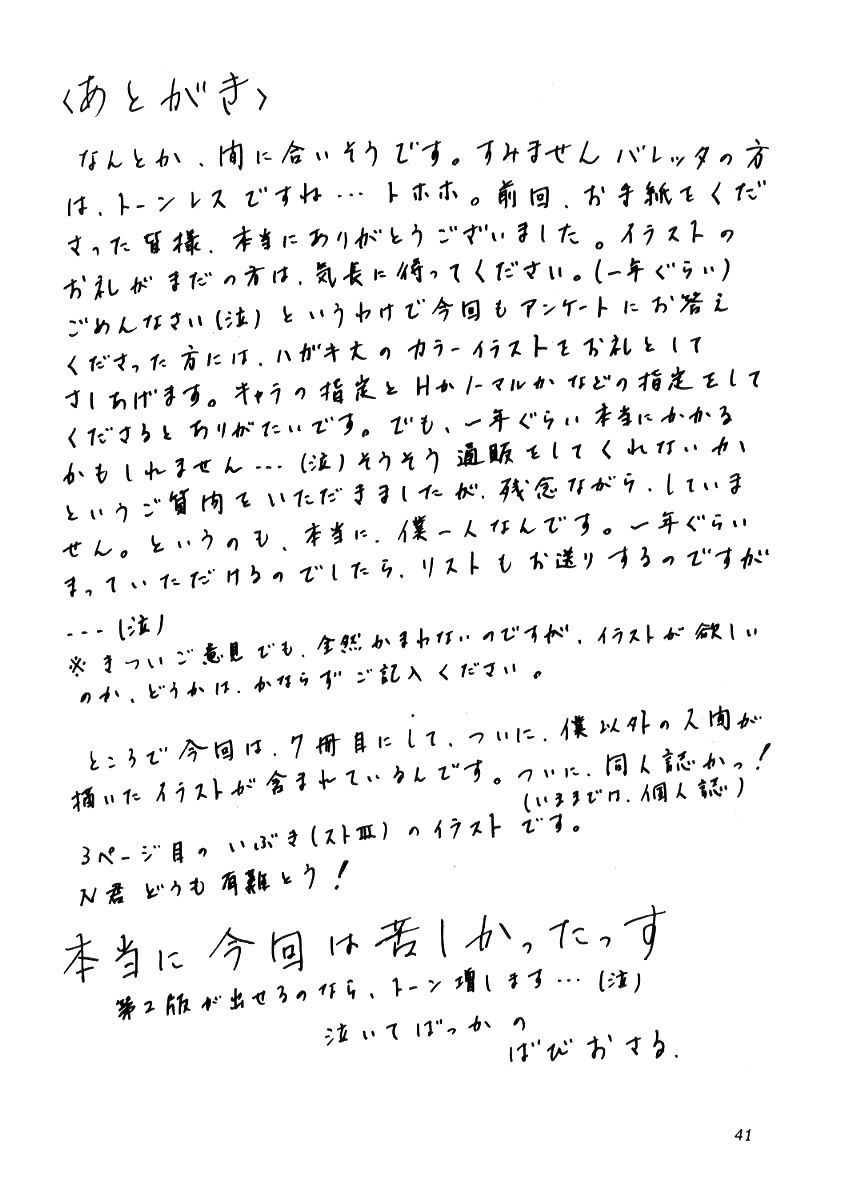 〈あとがき〉
なんとか、間に合いそうです。すみませんバレッタの方
は、トーンレスですね…トホホ。前回、お手紙をくだ
さった皆様、本当にありがとうございました。イラストの
お礼がまだの方は、気長に待ってください。(一年ぐらい)
ごめんなさい(泣)というわけで今回もアンケートにお答え
くださった方には、ハガキ大のカラーイラストをお礼として
さしあげます。キャラの指定とHかノーマルかなどの指定をして
くださるとありがたいです。でも、一年ぐらい本当にかかる
かもしれません…(泣)そうそう通販をしてくれないか
というご質問をいただきましたが、残念ながら、していま
せん。というのも、本当に、僕一人なんです。一年ぐらい
まっていただけるのでしたら、リストもお送りするのですが
…(泣)
※きついご意見でも、全然かまわないのですが、イラストが欲しい
のか、どうかは、かならずご記入ください。
ところで今回は、7冊目にして、ついに、僕以外の人間が
描いたイラストが含まれているんです。ついに、同人誌かっ!
(いままでは、個人誌)
3ページ目のいぶき(ストⅢ)のイラストです。
N君どうも有難とう!
本当に今回は苦しかったっす
第2版が出せるのなら、トーン増します…(泣)
泣いてばっかの
ばびおさる.
41